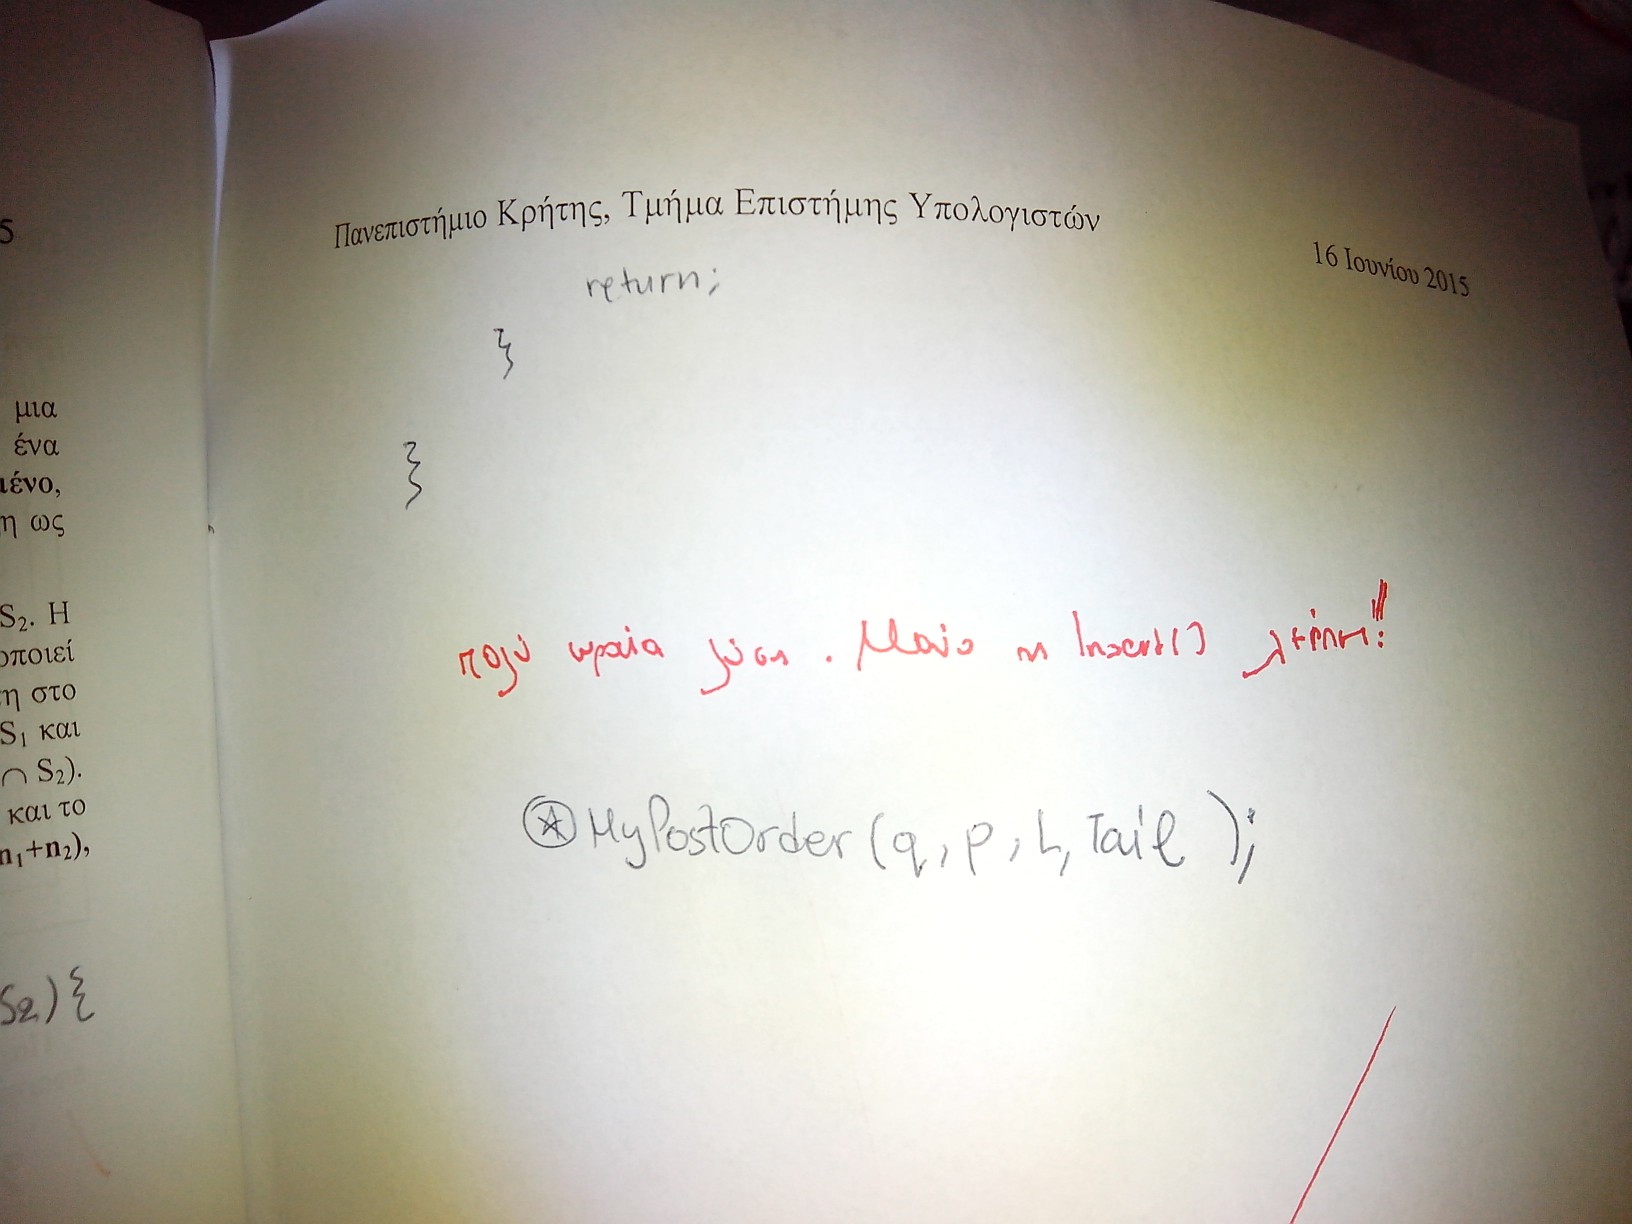 5
μια
ένα
ιένο,
η ως
S₂. Η
οποιεί
η στο
S₁ και
∩ S₂).
και το
n₁+n₂),
S₂){
Πανεπιστήμιο Κρήτης, Τμήμα Επιστήμης Υπολογιστών
16 Ιουνίου 2015
return;
}
}
πολύ ωραία λύση. Μόνο η Insert() λείπει!!
⍟ MyPostOrder(q, p, L, Tail );